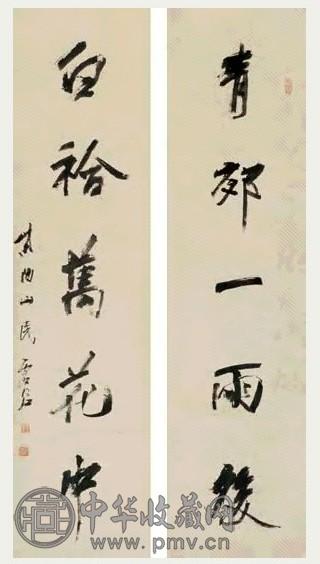 青郊一雨後
白袷萬花中
山民
中华收藏网
www.pmv.cn